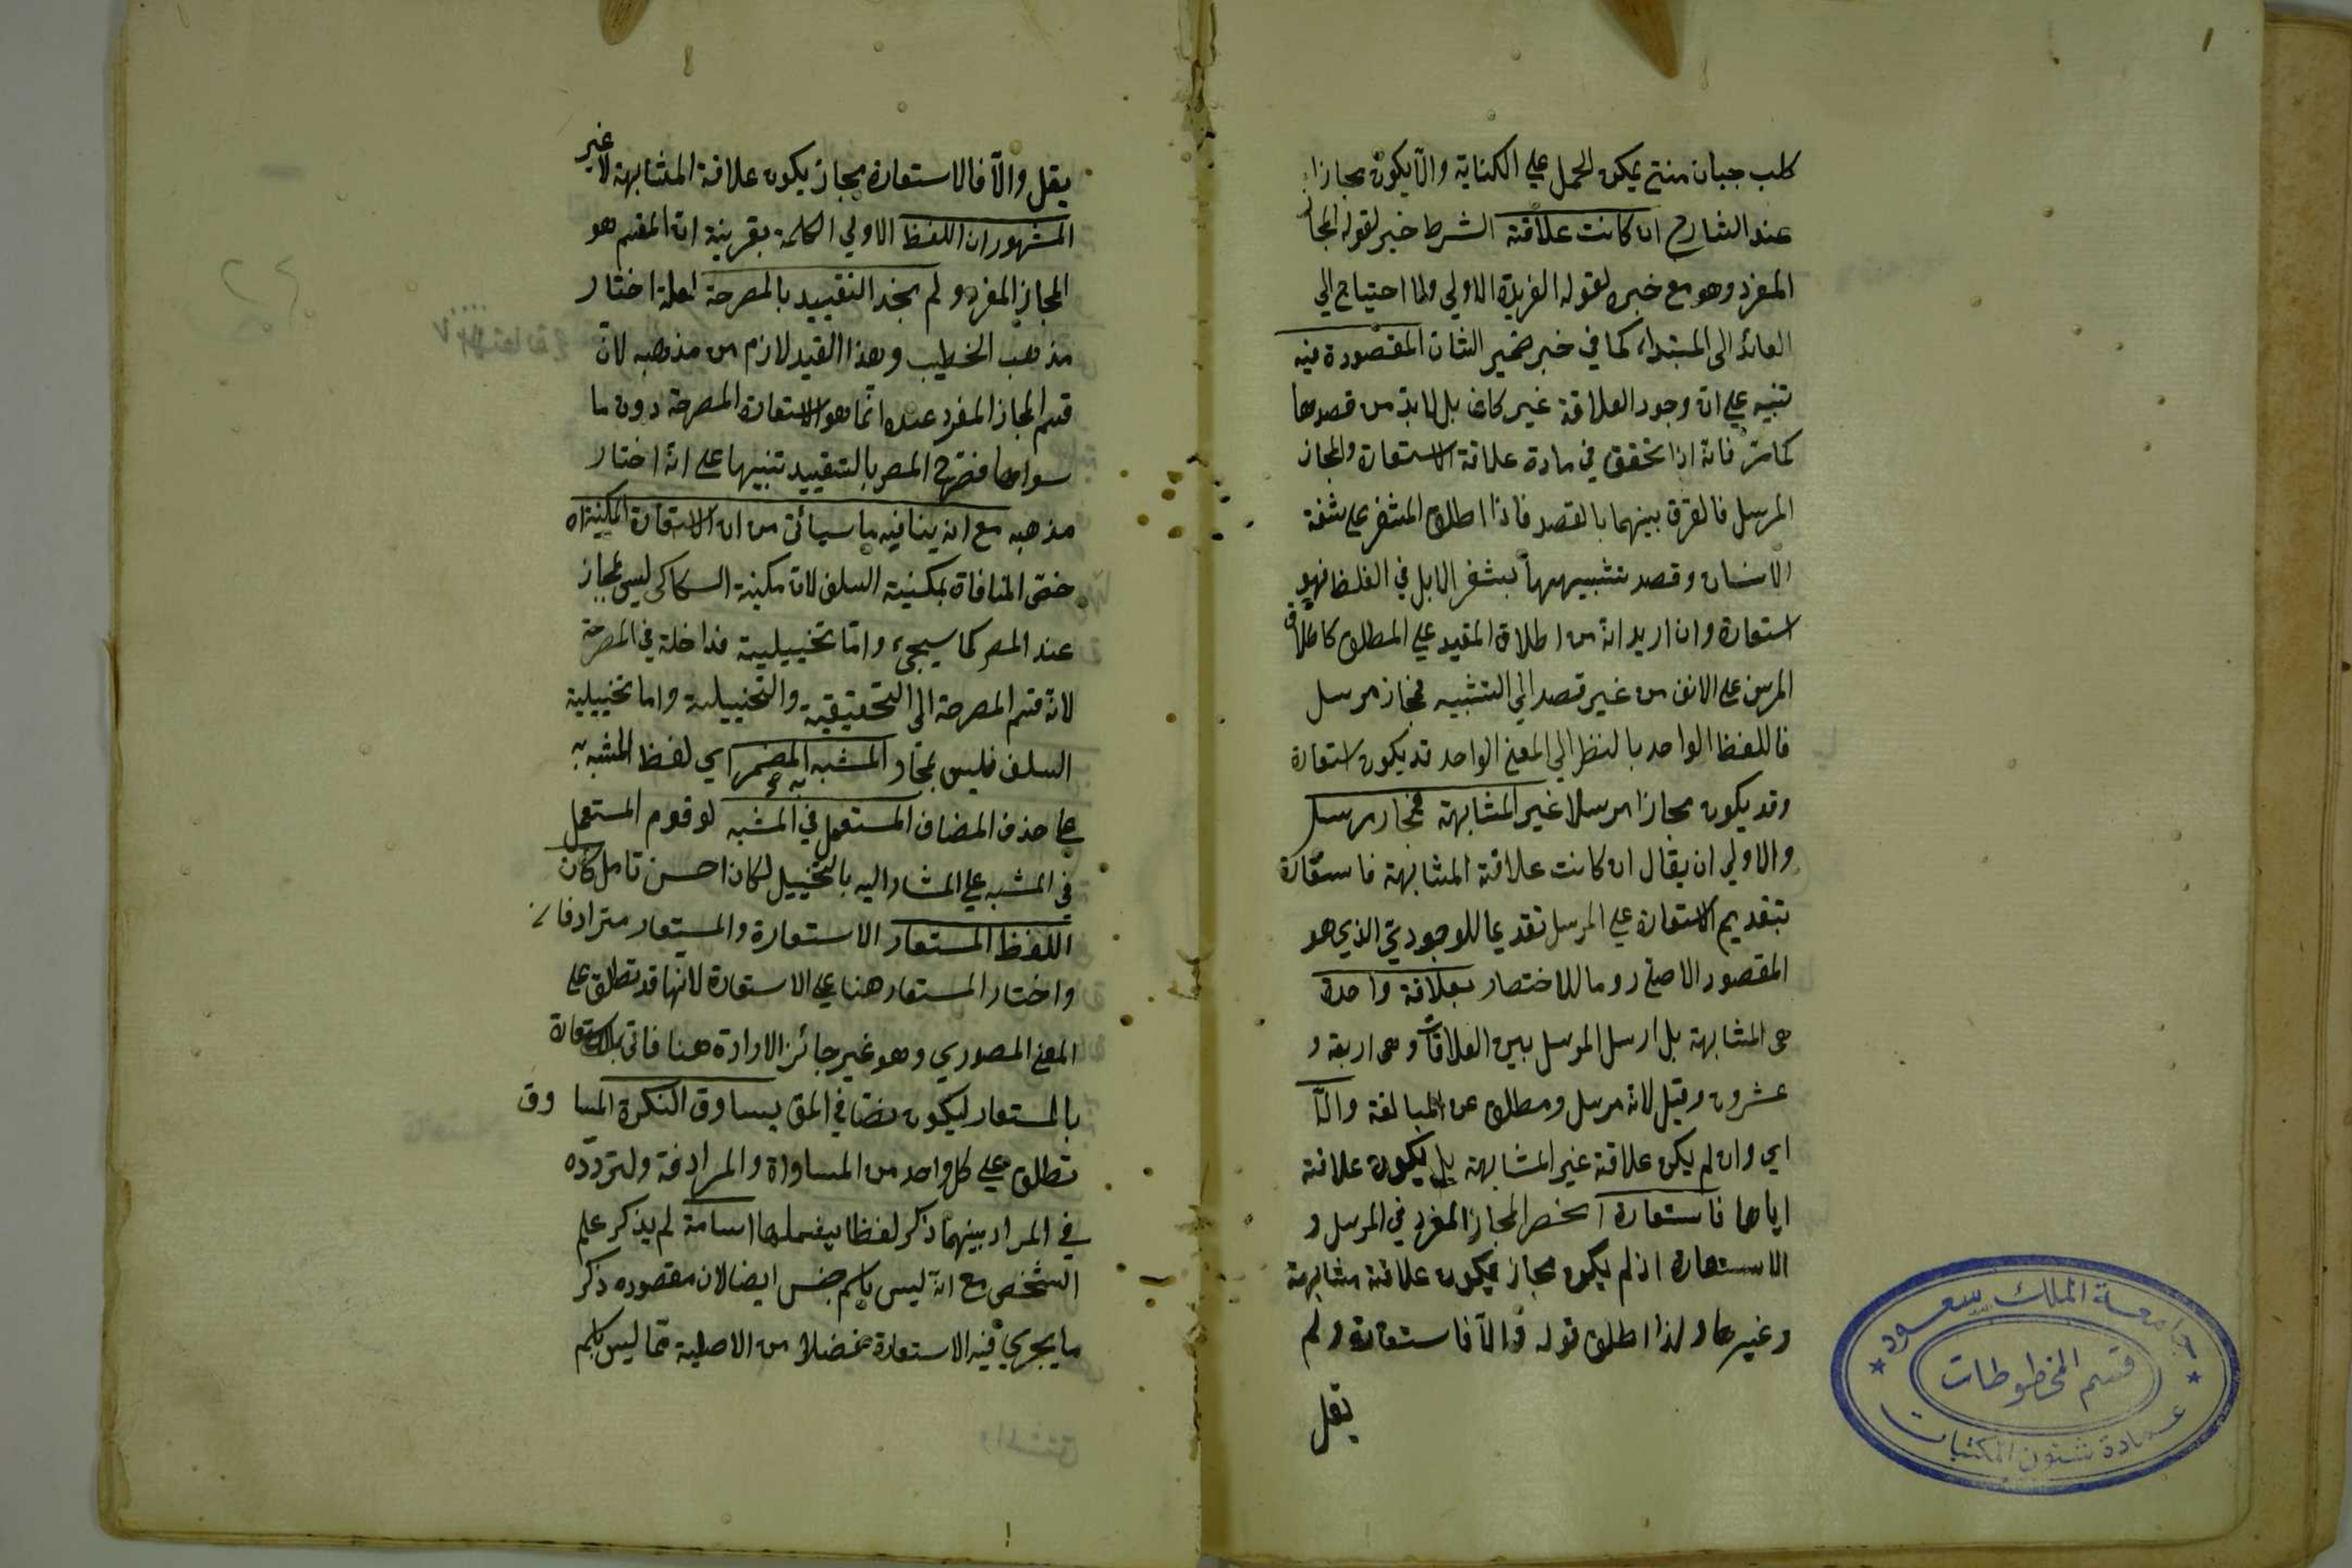 كلب جبان منتج يمكن الحمل على الكناية والا يكون مجازا
عند الشارح ان كانت علاقته الشرط خبر لقوله المجاز
المفرد وهو مع خبره لقوله الفريدة الاولى ولما احتياج الى
العائد الى المبتداء كما في خبر ضمير الشان المقصودة فيه
تنبيه على ان وجود العلاقة غير كاف بل لا بد من قصدها
كما مر فانه اذا تحقق في مادة علاقة الاستعارة والمجاز
المرسل فالفرق بينهما بالقصد فاذا اطلق المشفر على شفة
الانسان وقصد تشبيهها بمشفر الابل في الغلظ فهو
استعارة وان اريد انه من اطلاق المقيد على المطلق كاطلاق
المرسن على الانف من غير قصد الى التشبيه فمجاز مرسل
فاللفظ الواحد بالنظر الى المعنى الواحد قد يكون استعارة
وقد يكون مجازا مرسلا غير المشابهة فمجاز مرسل
والاولى ان يقال ان كانت علاقته المشابهة فاستعارة
بتقديم الاستعارة على المرسل تقديما للوجودي الذي هو
المقصود الاصلي روما للاختصار بعلاقة واحدة
هى المشابهة بل ارسل المرسل بين العلاقات وهى اربعة و
عشرون وقيل لانه مرسل ومطلق عن المبالغة والا
اي وان لم يكن علاقته غير المشابهة بل يكون علاقته
اياها فاستعارة انحصر المجاز المفرد في المرسل و
الاستعارة اذ لم يكن مجاز يكون علاقته مشابهة
وغيرها ولذا اطلق قوله والا فاستعارة ولم
يقل
يقل والا فالاستعارة مجاز يكون علاقة المشابهة لا غير
المشهور ان اللفظ الاولى الكلمة بقرينة ان المقسم هو
المجاز المفرد ولم نجد التقييد بالمصرحة لعله اختار
مذهب الخطيب وهذا القيد لازم من مذهبه لان
قسم المجاز المفرد عنده انما هو الاستعارة المصرحة دون ما
سواها المص بالتقييد تنبيها على انه اختار
مذهبه مع انه ينافيه ما سيأتي من ان الاستعارة المكنية اه
خص المنافاة بمكنية السلف لان مكنية السكاكى ليس بمجاز
عند المص كما سيجئ واما تخييلية فداخلة في المصرحة
لانه قسم المصرحة الى التحقيقية والتخييلية واما تخييلية
السلف فليس بمجاز المشبه به المضمر اي لفظ المشبه به
على حذف المضاف المستعمل في المشبه لو قدم المستعمل
في المشبه على المشار اليه بالتخييل لكان احسن تامل كان
اللفظ المستعار الاستعارة والمستعار مترادفان
واختار المستعار هنا على الاستعارة لانها قد تطلق على
المعنى المصدري وهو غير جائز الارادة هنا فاتى
بالمستعار ليكون نصا في المق بيساوق النكرة المساوق
تطلق على كل واحد من المساواة والمرادفة ولتردده
في المراد بينهما ذكر لفظا يشملها اسامة لم يذكر علم
الشخص مع انه ليس باسم جنس ايضا لان مقصوده ذكر
ما يجري فيه الاستعارة فضلا من الاصلية مما ليس باسم
جامعة الملك سعود
قسم المخطوطات
عمادة شئون المكتبات